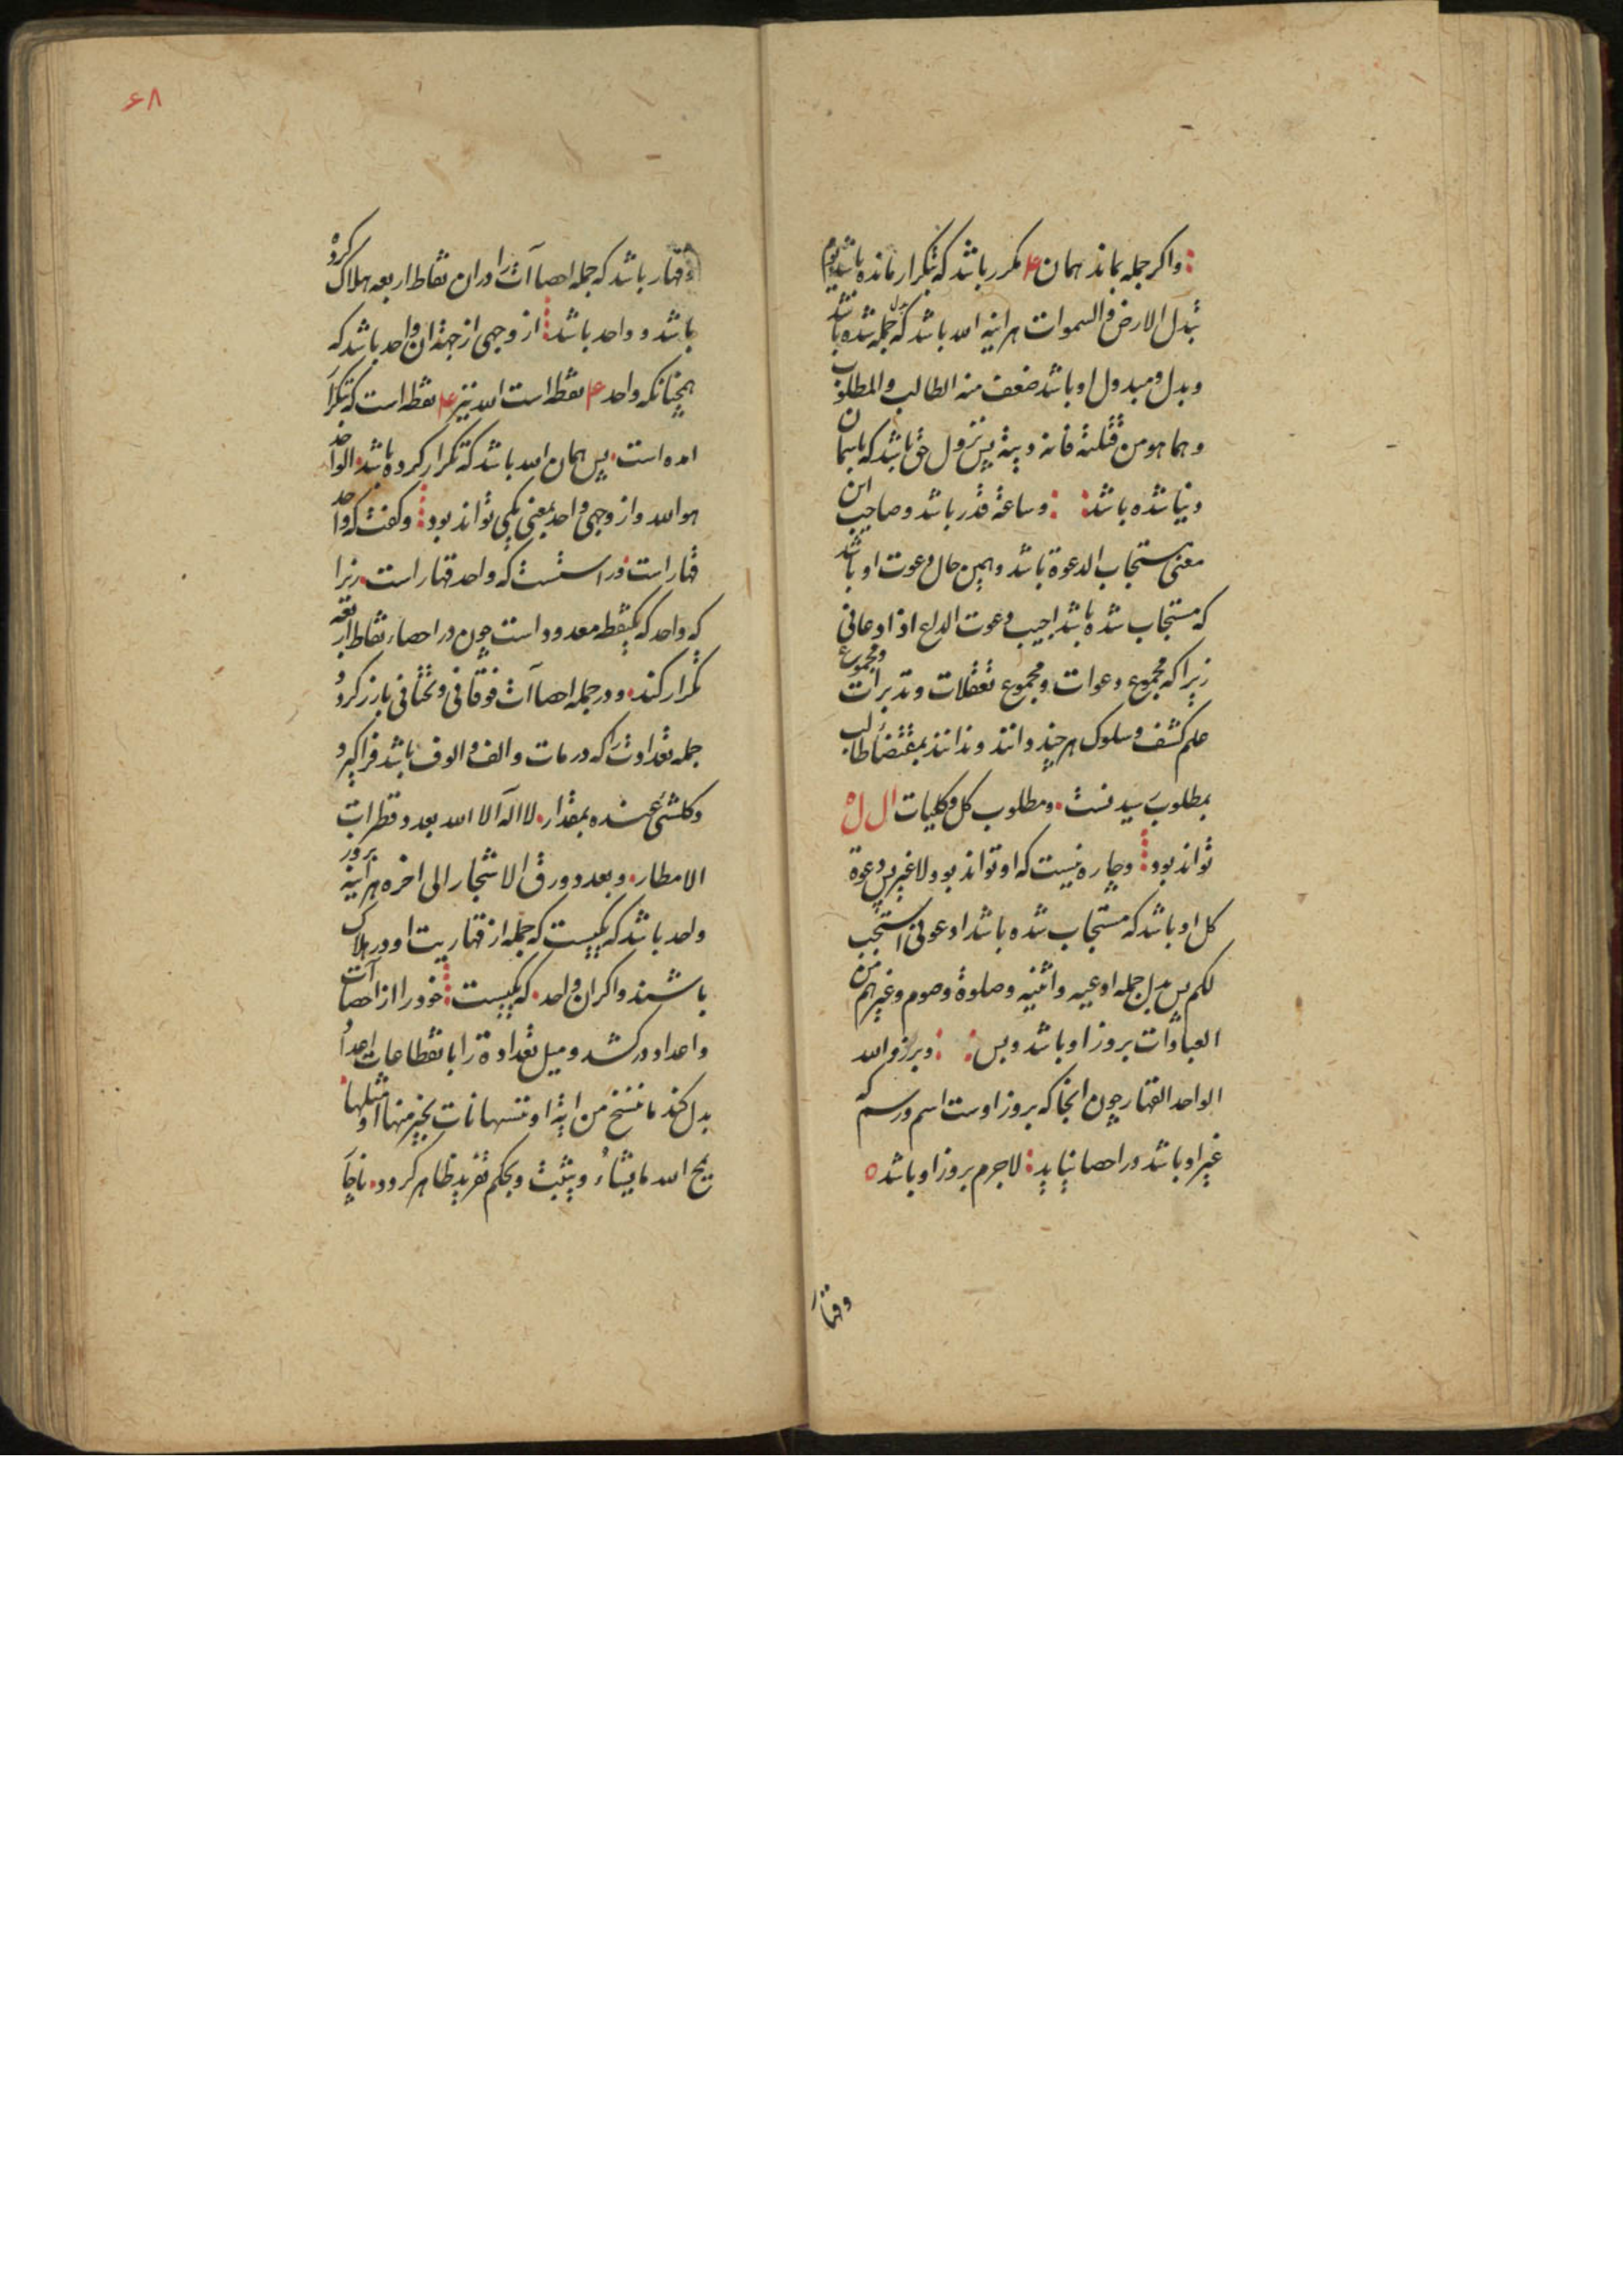 واکر جمله بماند همان ۴ مکرر باشد که بتکرار مانده باشد یوم
تبدل الارض و السموات هراینه الله باشد که بدل جمله شده باشد
و بدل و مبدول او باشد ضعف منه الطالب و المطلوب
و هما هو من قتلته فانه دیته پس نزول حق باشد که باسمان
دنیا شده باشد و ساعة قدر باشد و صاحب این
معنی مستجاب الدعوة باشد و همین حال دعوت او باشد
که مستجاب شده باشد اجیب دعوت الداع اذا دعانی
زیرا که مجموع دعوات و مجموع تعقلات و تدبرات و مجموع
علم کشف و سلوک هر چند دانند و ندانند بمقتضا طالب
بمطلوب رسیدنست و مطلوب کل و کلیات ال ل ه
تواند بود و چاره نیست که او تواند بود و لا غیر پس دعوة
کل او باشد که مستجاب شده باشد ادعونی استجب
لکم پس بدل جمله ادعیه و اثنیه و صلوة و صوم و غیرهم من
العبادات بروز او باشد و بس و برزو الله
الواحد القهار چون انجا که بروز اوست اسم و رسم که
غیر او باشد در احصا نیاید لاجرم بروز او باشد ه
و قهار
۶۸
و قهار باشد که جمله احصاآت را در ان نقاط اربعه هلاک کرده
باشد و واحد باشد از وجهی از جهة ان واحد باشد که
همچنانکه واحد ۴ نقطه است الله نیز ۴ نقطه است که بتکرار
امده است پس همان الله باشد که تکرار کرده باشد الواحد
هو الله و از وجهی واحد بمعنی یکی تواند بود و کفت که واحد
قهار است در اسست که واحد قهار است زیرا
که واحد که بیکنقطه معدود است چون در احصاء نقاط اربعه
تکرار کند و در جمله احصاآت فوقانی و تحتانی بارز کردد
جمله تعدادت را که در مات و الف و الوف باشد فراکیرد
و کلشئ عنده بمقدار لا اله الا الله بعدد قطرات
الامطار و بعدد ورق الاشجار الی اخره هراینه بروز
واحد باشد که یکیست که جمله از قهاریت او در هلاک
باشند و اکر ان واحد که یکیست خود را از احصاآت
و اعداد درکشد و میل تعدادة را با نقطاعات اعداد
بدل کند ما ننسخ من ایة او ننسها نات بخیر منها او مثلها
یمح الله ما یشاء و یثبت و بحکم تفرید ظاهر کردد ناچار